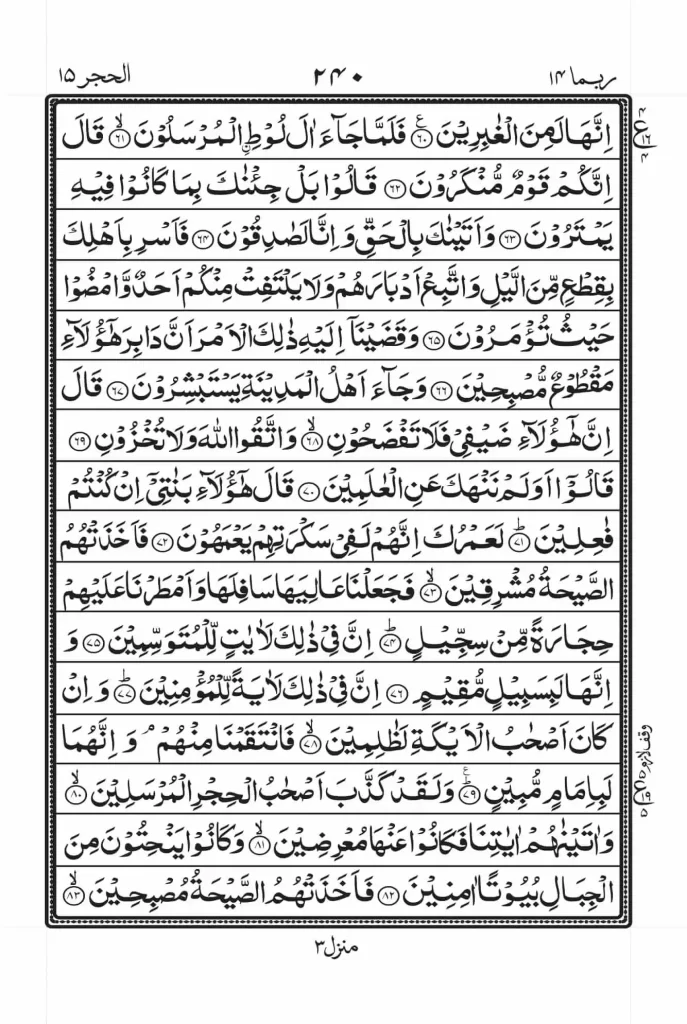 ربما ۱۴ ۲۴۰ الحجر ۱۵
اِنَّهَا لَمِنَ الْغٰبِرِيْنَ ﴿۶۰﴾ فَلَمَّا جَآءَ اٰلَ لُوْطِ ۣالْمُرْسَلُوْنَ ﴿۶۱﴾ قَالَ
اِنَّكُمْ قَوْمٌ مُّنْكَرُوْنَ ﴿۶۲﴾ قَالُوْا بَلْ جِئْنٰكَ بِمَا كَانُوْا فِيْهِ
يَمْتَرُوْنَ ﴿۶۳﴾ وَاَتَيْنٰكَ بِالْحَقِّ وَاِنَّا لَصٰدِقُوْنَ ﴿۶۴﴾ فَاَسْرِ بِاَهْلِكَ
بِقِطْعٍ مِّنَ الَّيْلِ وَاتَّبِعْ اَدْبَارَهُمْ وَلَا يَلْتَفِتْ مِنْكُمْ اَحَدٌ وَّامْضُوْا
حَيْثُ تُؤْمَرُوْنَ ﴿۶۵﴾ وَقَضَيْنَاۤ اِلَيْهِ ذٰلِكَ الْاَمْرَ اَنَّ دَابِرَ هٰۤؤُلَآءِ
مَقْطُوْعٌ مُّصْبِحِيْنَ ﴿۶۶﴾ وَجَآءَ اَهْلُ الْمَدِيْنَةِ يَسْتَبْشِرُوْنَ ﴿۶۷﴾ قَالَ
اِنَّ هٰۤؤُلَآءِ ضَيْفِيْ فَلَا تَفْضَحُوْنِ ﴿۶۸﴾ۙ وَاتَّقُوا اللّٰهَ وَلَا تُخْزُوْنِ ﴿۶۹﴾
قَالُوْۤا اَوَلَمْ نَنْهَكَ عَنِ الْعٰلَمِيْنَ ﴿۷۰﴾ قَالَ هٰۤؤُلَآءِ بَنٰتِيْۤ اِنْ كُنْتُمْ
فٰعِلِيْنَ ﴿۷۱﴾ؕ لَعَمْرُكَ اِنَّهُمْ لَفِيْ سَكْرَتِهِمْ يَعْمَهُوْنَ ﴿۷۲﴾ فَاَخَذَتْهُمُ
الصَّيْحَةُ مُشْرِقِيْنَ ﴿۷۳﴾ۙ فَجَعَلْنَا عَالِيَهَا سَافِلَهَا وَاَمْطَرْنَا عَلَيْهِمْ
حِجَارَةً مِّنْ سِجِّيْلٍ ﴿۷۴﴾ؕ اِنَّ فِيْ ذٰلِكَ لَاٰيٰتٍ لِّلْمُتَوَسِّمِيْنَ ﴿۷۵﴾ وَ
اِنَّهَا لَبِسَبِيْلٍ مُّقِيْمٍ ﴿۷۶﴾ اِنَّ فِيْ ذٰلِكَ لَاٰيَةً لِّلْمُؤْمِنِيْنَ ﴿۷۷﴾ؕ وَاِنْ
كَانَ اَصْحٰبُ الْاَيْكَةِ لَظٰلِمِيْنَ ﴿۷۸﴾ۙ فَانْتَقَمْنَا مِنْهُمْ ۘ وَاِنَّهُمَا
لَبِاِمَامٍ مُّبِيْنٍ ﴿۷۹﴾ؕ وَلَقَدْ كَذَّبَ اَصْحٰبُ الْحِجْرِ الْمُرْسَلِيْنَ ﴿۸۰﴾ۙ
وَاٰتَيْنٰهُمْ اٰيٰتِنَا فَكَانُوْا عَنْهَا مُعْرِضِيْنَ ﴿۸۱﴾ۙ وَكَانُوْا يَنْحِتُوْنَ مِنَ
الْجِبَالِ بُيُوْتًا اٰمِنِيْنَ ﴿۸۲﴾ فَاَخَذَتْهُمُ الصَّيْحَةُ مُصْبِحِيْنَ ﴿۸۳﴾ۙ
وقف لازم
منزل ۳